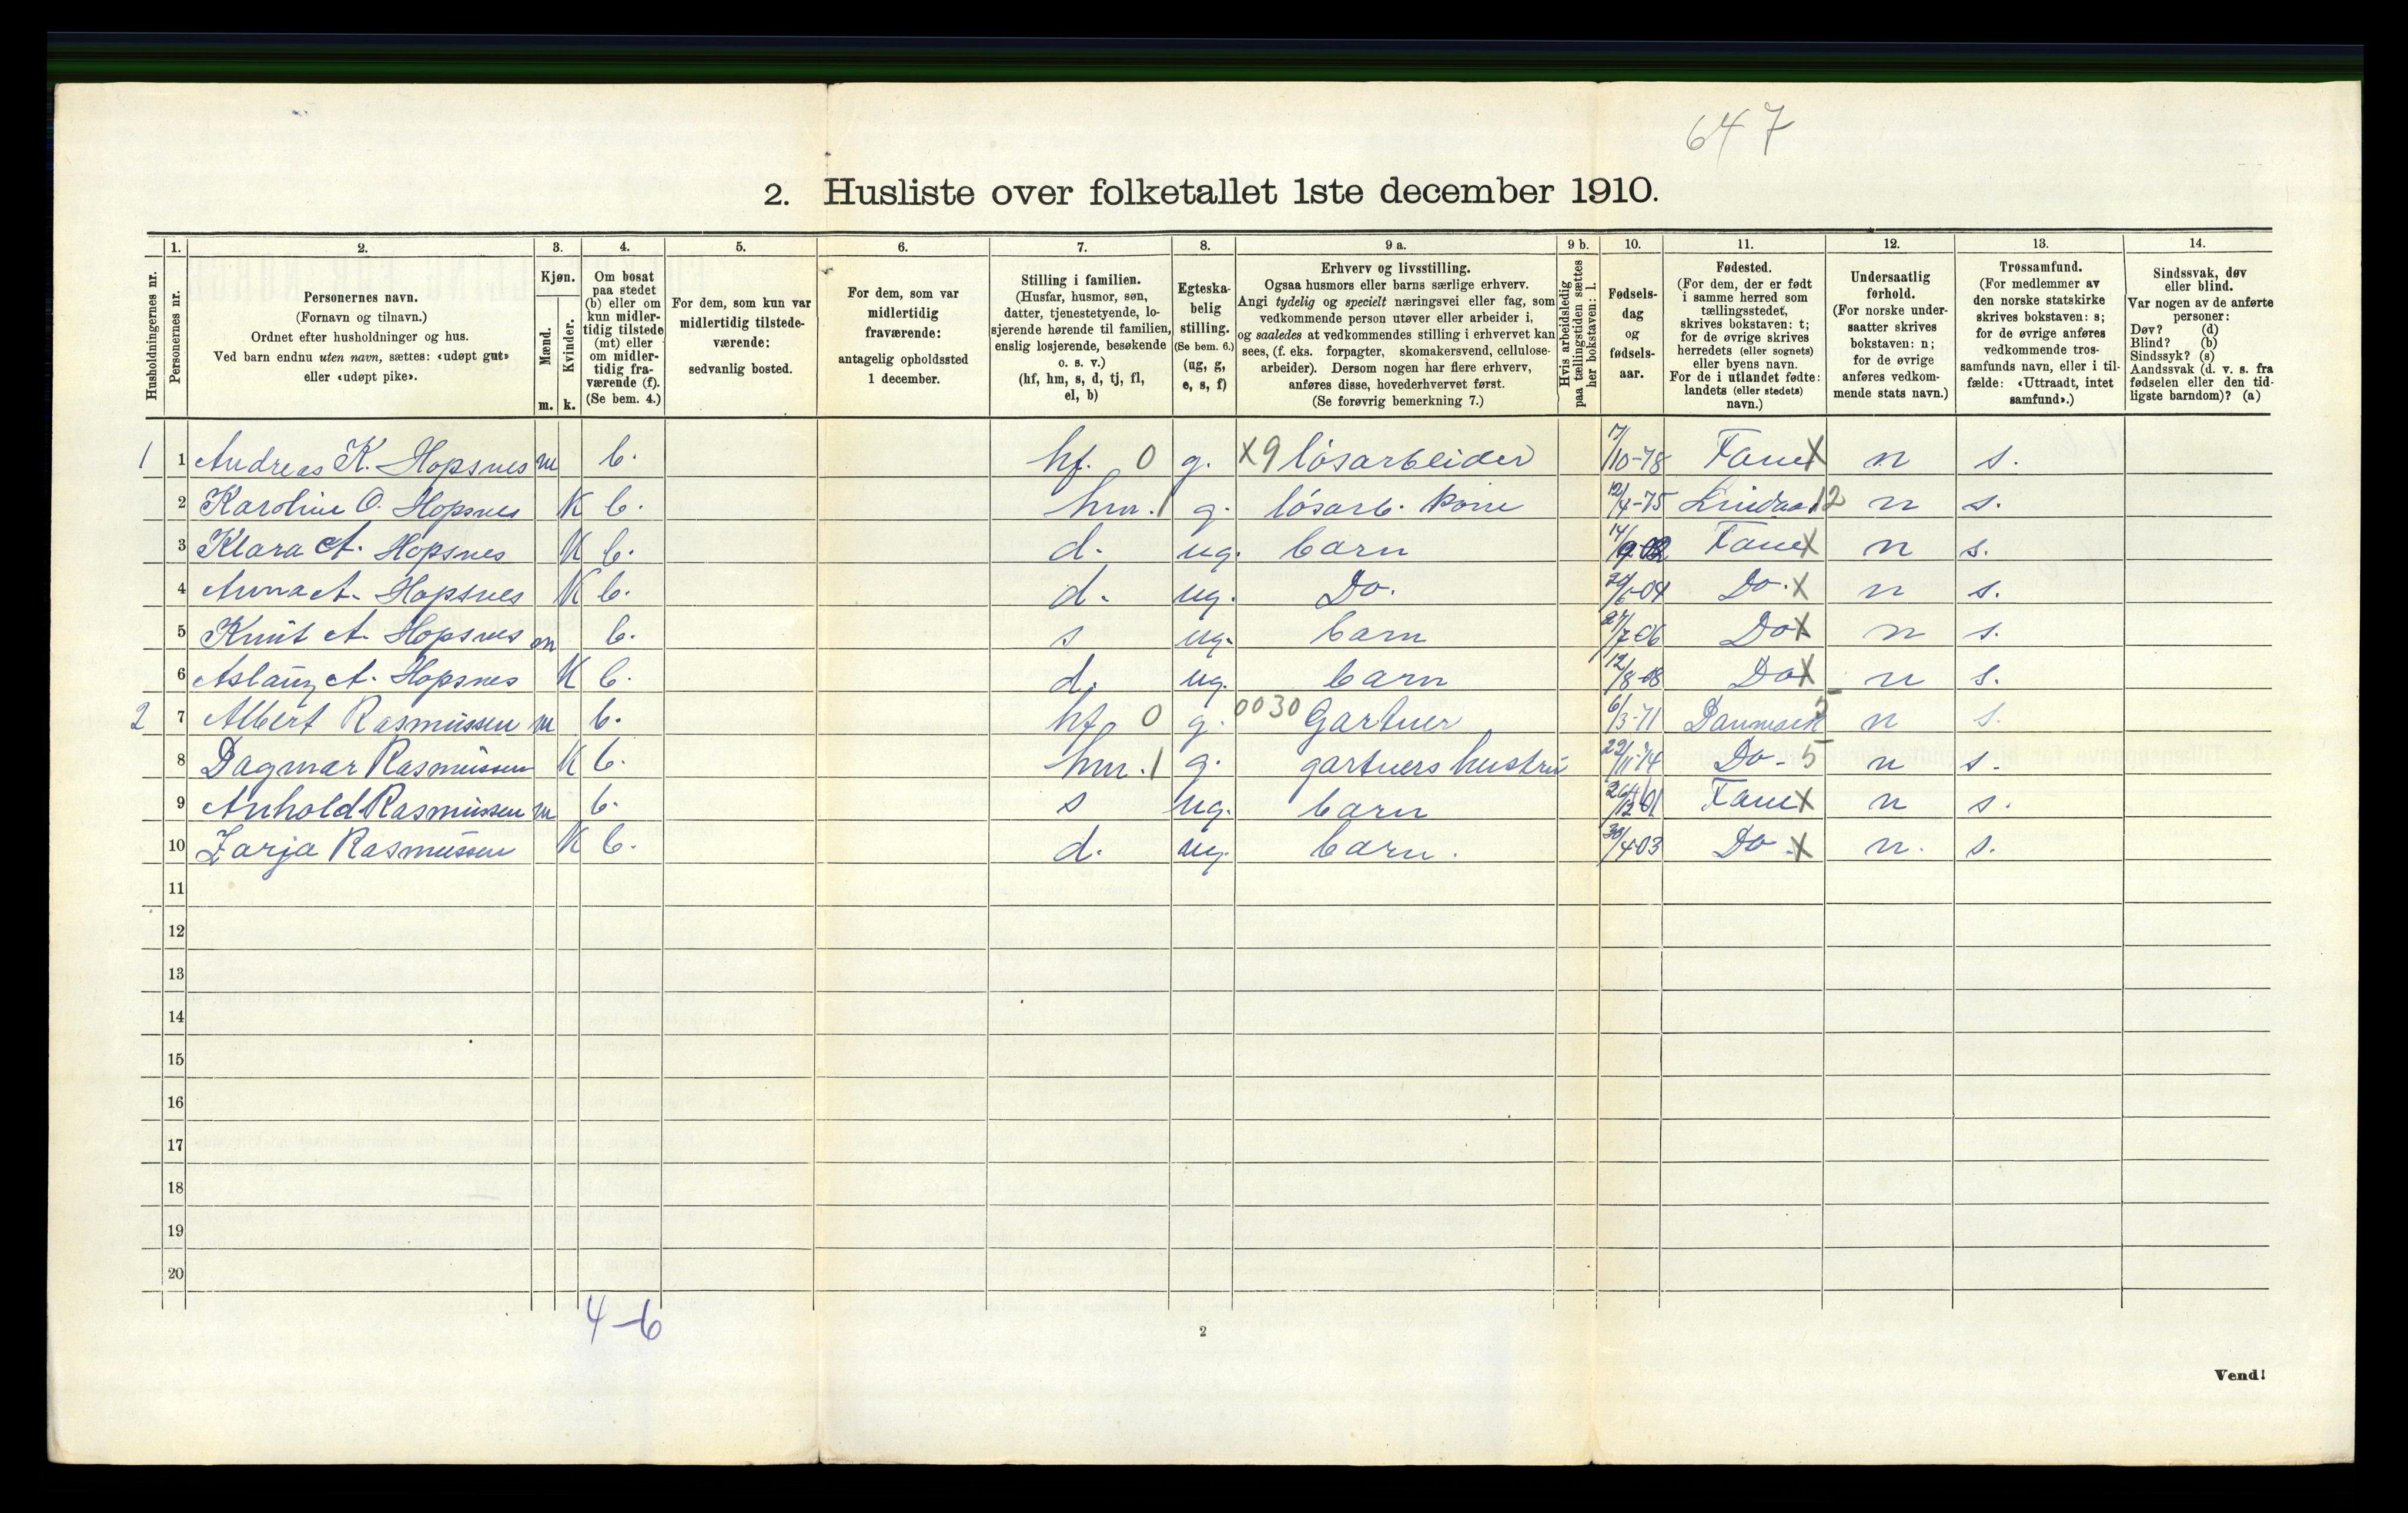 647
2. Husliste over folketallet 1ste december 1910.
Husholdningernes nr.
1. Personernes nr.
2. Personernes navn. (Fornavn og tilnavn.) Ordnet efter husholdninger og hus. Ved barn endnu uten navn, sættes: «udøpt gut» eller «udøpt pike».
3. Kjøn. Mænd. m. Kvinder. k.
4. Om bosat paa stedet (b) eller om kun midlertidig tilstede (mt) eller om midlertidig fraværende (f). (Se bem. 4.)
5. For dem, som kun var midlertidig tilstedeværende: sedvanlig bosted.
6. For dem, som var midlertidig fraværende: antagelig opholdssted 1 december.
7. Stilling i familien. (Husfar, husmor, søn, datter, tjenestetyende, losjerende hørende til familien, enslig losjerende, besøkende o. s. v.) (hf, hm, s, d, tj, fl, el, b)
8. Egteskabelig stilling. (Se bem. 6.) (ug, g, e, s, f)
9 a. Erhverv og livsstilling. Ogsaa husmors eller barns særlige erhverv. Angi tydelig og specielt næringsvei eller fag, som vedkommende person utøver eller arbeider i, og saaledes at vedkommendes stilling i erhvervet kan sees, (f. eks. forpagter, skomakersvend, cellulosearbeider). Dersom nogen har flere erhverv, anføres disse, hovederhvervet først. (Se forøvrig bemerkning 7.)
9 b. Hvis arbeidsledig paa tællingstiden sættes her bokstaven: l.
10. Fødselsdag og fødselsaar.
11. Fødested. (For dem, der er født i samme herred som tællingsstedet, skrives bokstaven: t; for de øvrige skrives herredets (eller sognets) eller byens navn. For de i utlandet fødte: landets (eller stedets) navn.)
12. Undersaatlig forhold. (For norske undersaatter skrives bokstaven: n; for de øvrige anføres vedkommende stats navn.)
13. Trossamfund. (For medlemmer av den norske statskirke skrives bokstaven: s; for de øvrige anføres vedkommende trossamfunds navn, eller i tilfælde: «Uttraadt, intet samfund».)
14. Sindssvak, døv eller blind. Var nogen av de anførte personer: Døv? (d) Blind? (b) Sindssyk? (s) Aandssvak (d. v. s. fra fødselen eller den tidligste barndom)? (a)
1 1 Andreas K. Hopsnes m b. hf. 0 g. X9 løsarbeider 7/10-78 Fane X n s.
2 Karoline O. Hopsnes K b. hm. 1 g. løsarb. kone 12/4-75 Lindaas 12 n s.
3 Klara A. Hopsnes K b. d. ug. barn 14/9-02 Fane X n s.
4 Anna A. Hopsnes K b. d. ug. Do. 24/6-04 Do. X n s.
5 Knut A. Hopsnes m b. s ug. barn 27/7-06 Do X n s.
6 Aslaug A. Hopsnes K b. d. ug. barn 12/8-08 Do X n s.
2 7 Albert Rasmussen m b. hf. 0 g. 0030 Gartner 6/3-71 Danmark 5 n s.
8 Dagmar Rasmussen K b. hm. 1 g. gartners hustru 22/11-74 Do - 5 n s.
9 Anhold Rasmussen m b. s ug. barn 26/12-01 Fane X n s.
10 Zarja Rasmussen K b. d. ug. barn. 30/4-03 Do - X n. s.
11
12
13
14
15
16
17
18
19
20
4-6
2
Vend!